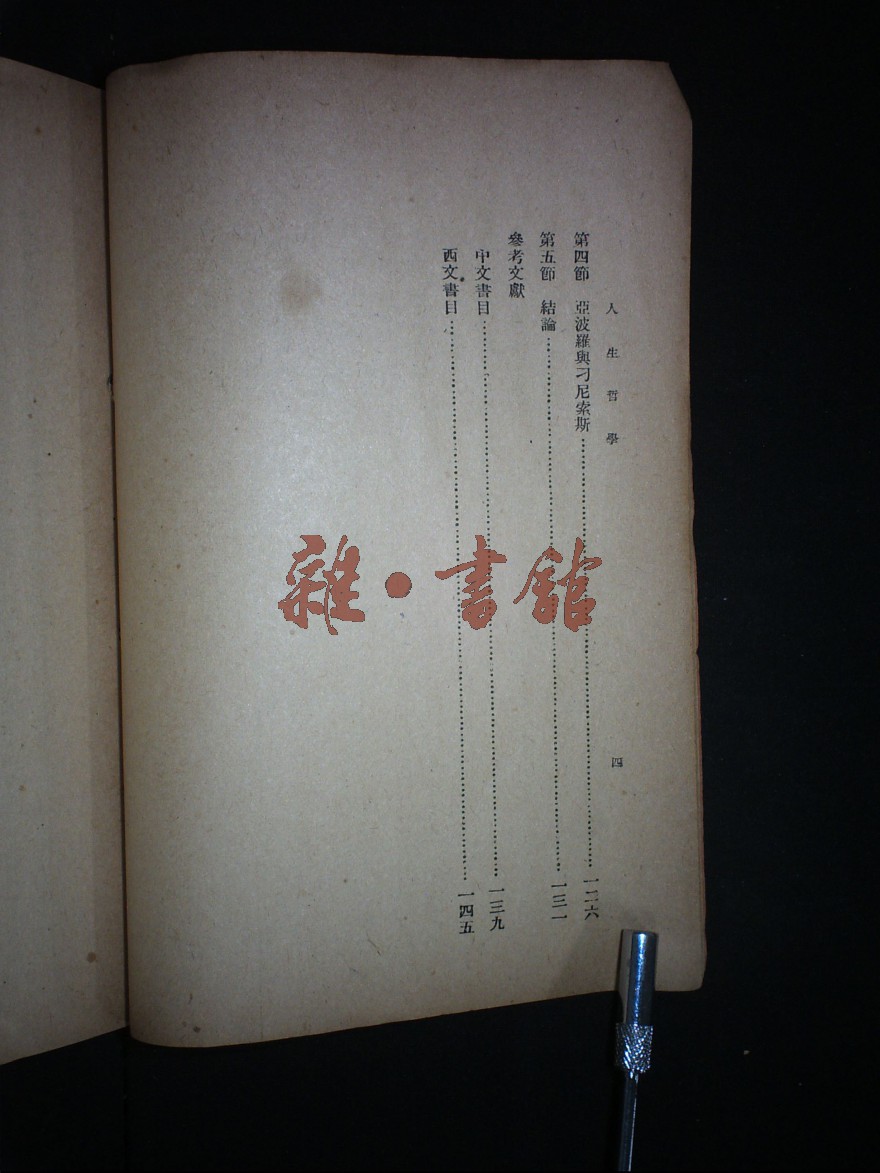 人生哲學
四
第四節 亞波羅與刁尼索斯……一二六
第五節 結論……一三一
參考文獻
中文書目……一三九
西文書目……一四五
雜·書館